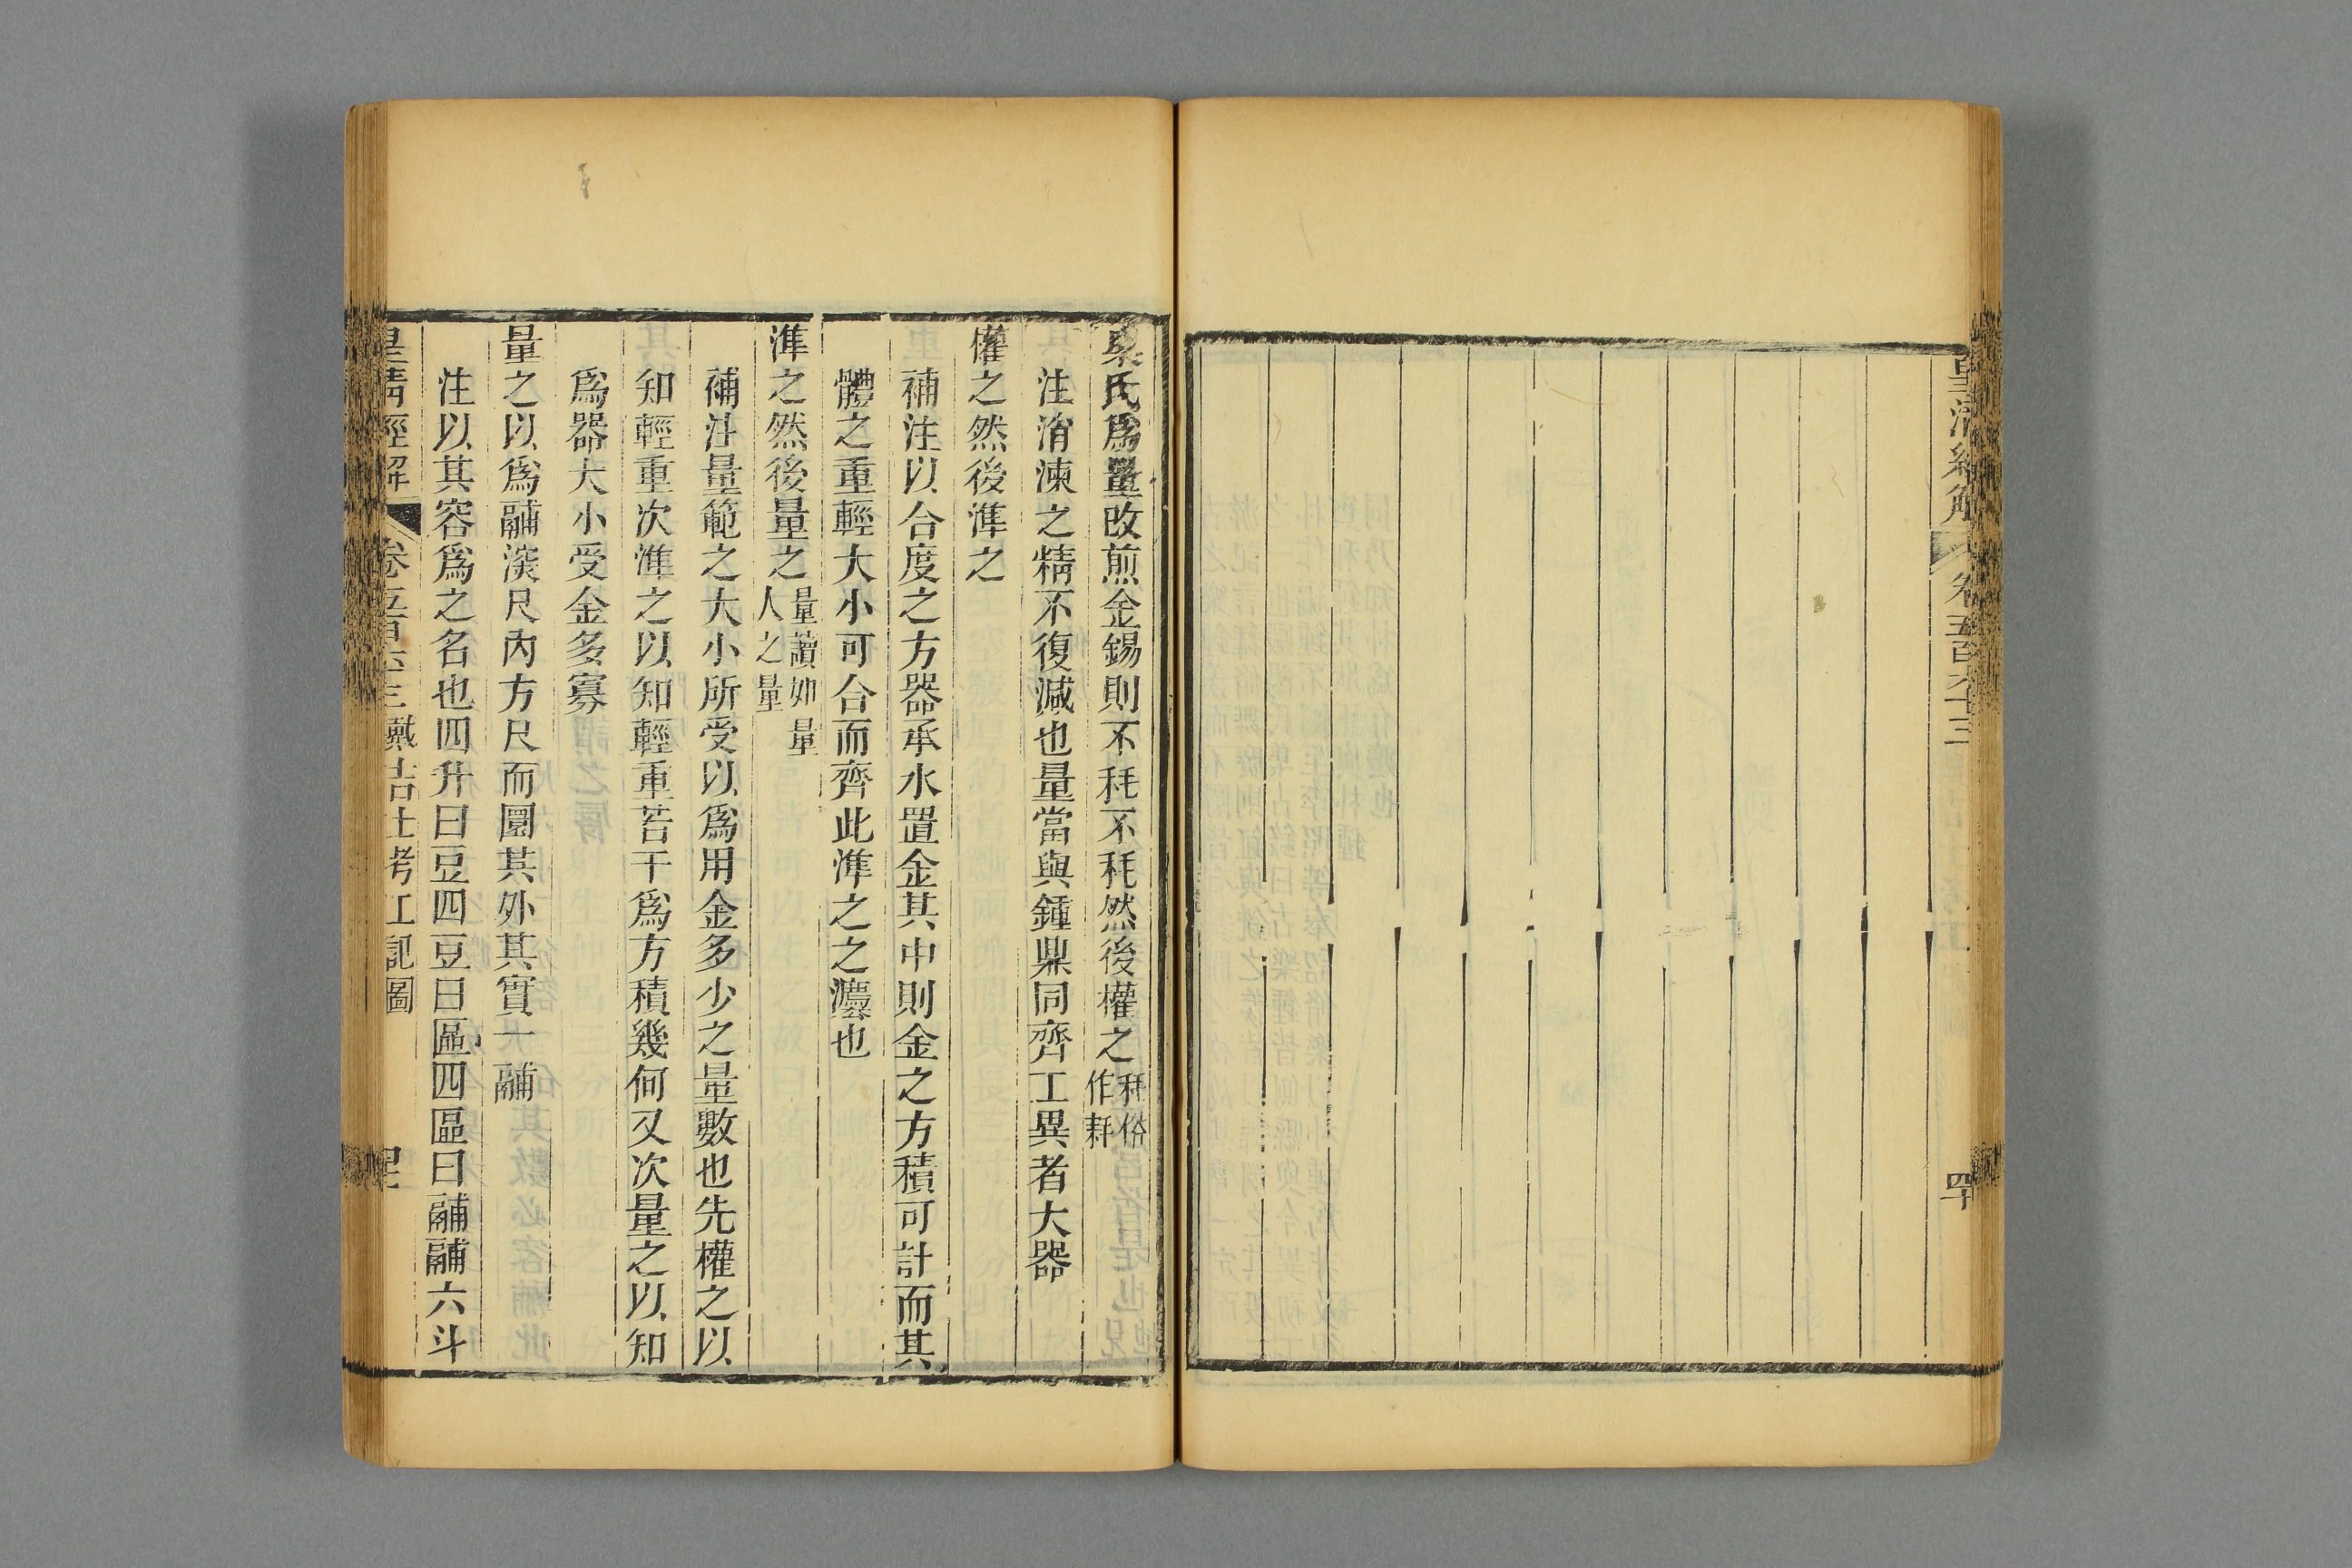 皇清經解 卷五百六十三
四十
㮚氏爲量改煎金錫則不秏不秏然後權之秏俗作耗
注消湅之精不復減也量當與鍾鼎同齊工異者大器
權之然後準之
補注以合度之方器承水置金其中則金之方積可計而其
體之重輕大小可合而齊此準之之灋也
準之然後量之量讀如量人之量
補注量範之大小所受以爲用金多少之量數也先權之以
知輕重次準之以知輕重若干爲方積幾何又次量之以知
爲器大小受金多寡
量之以爲鬴深尺內方尺而圜其外其實一鬴
注以其容爲之名也四升曰豆四豆曰區四區曰鬴鬴六斗
皇清經解 卷五百六十三 戴吉士考工記圖